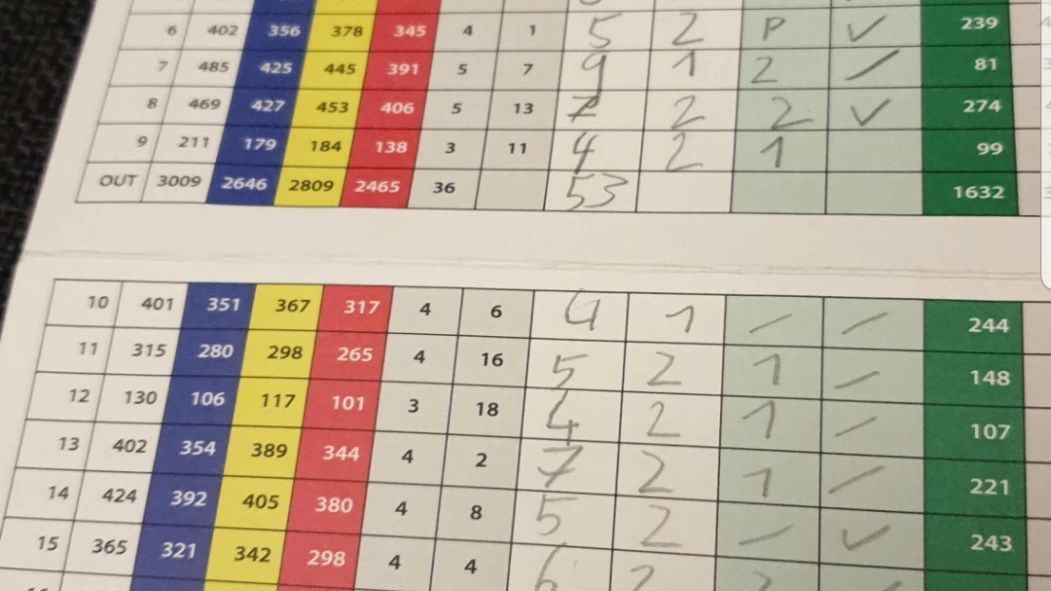 6 402 356 378 345 4 1 5 2 P ✓ 239
7 485 425 445 391 5 7 9 1 2 / 81
8 469 427 453 406 5 13 7 2 2 ✓ 274
9 211 179 184 138 3 11 4 2 1 99
OUT 3009 2646 2809 2465 36 53 1632
10 401 351 367 317 4 6 4 1 / / 244
11 315 280 298 265 4 16 5 2 1 / 148
12 130 106 117 101 3 18 4 2 1 / 107
13 402 354 389 344 4 2 7 2 1 / 221
14 424 392 405 380 4 8 5 2 / ✓ 243
15 365 321 342 298 4 4 6